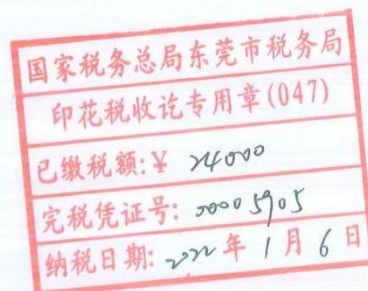 国家税务总局东莞市税务局
印花税收讫专用章(047)
已缴税额:¥ 24000
完税凭证号: 00005905
纳税日期: 2022 年 1 月 6 日